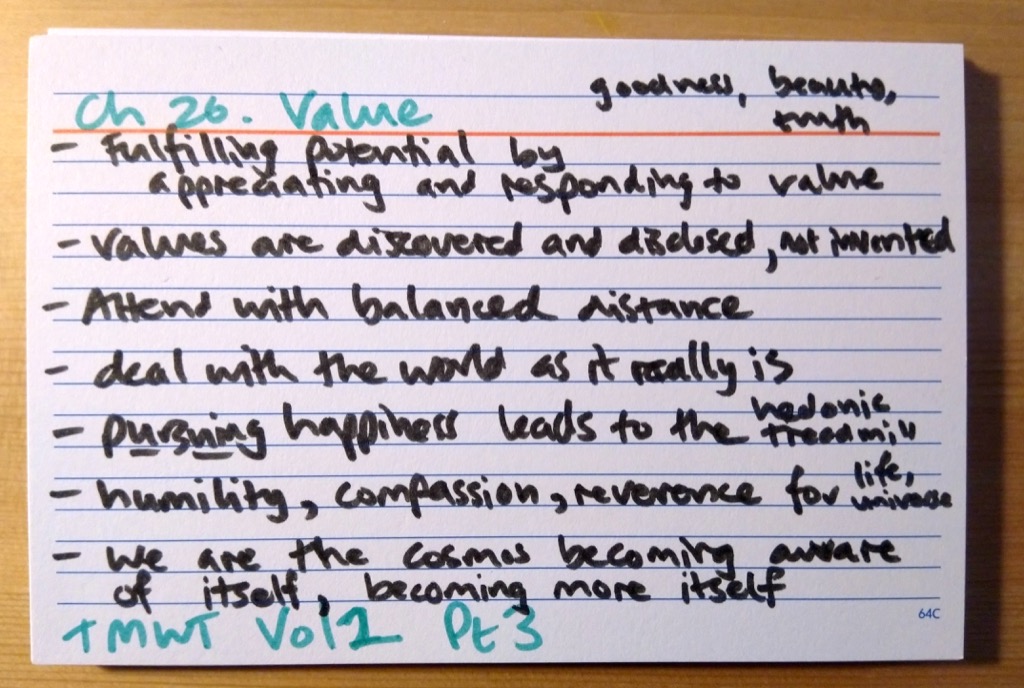 goodness, beauty,
truth
Ch 26. Value
- Fulfilling potential by
appreciating and responding to value
- values are discovered and disclosed, not invented
- Attend with balanced distance
- deal with the world as it really is
- pursuing happiness leads to the hedonic
treadmill
- humility, compassion, reverence for life,
universe
- we are the cosmos becoming aware
of itself, becoming more itself
TMWT Vol 2 Pt 3
64C